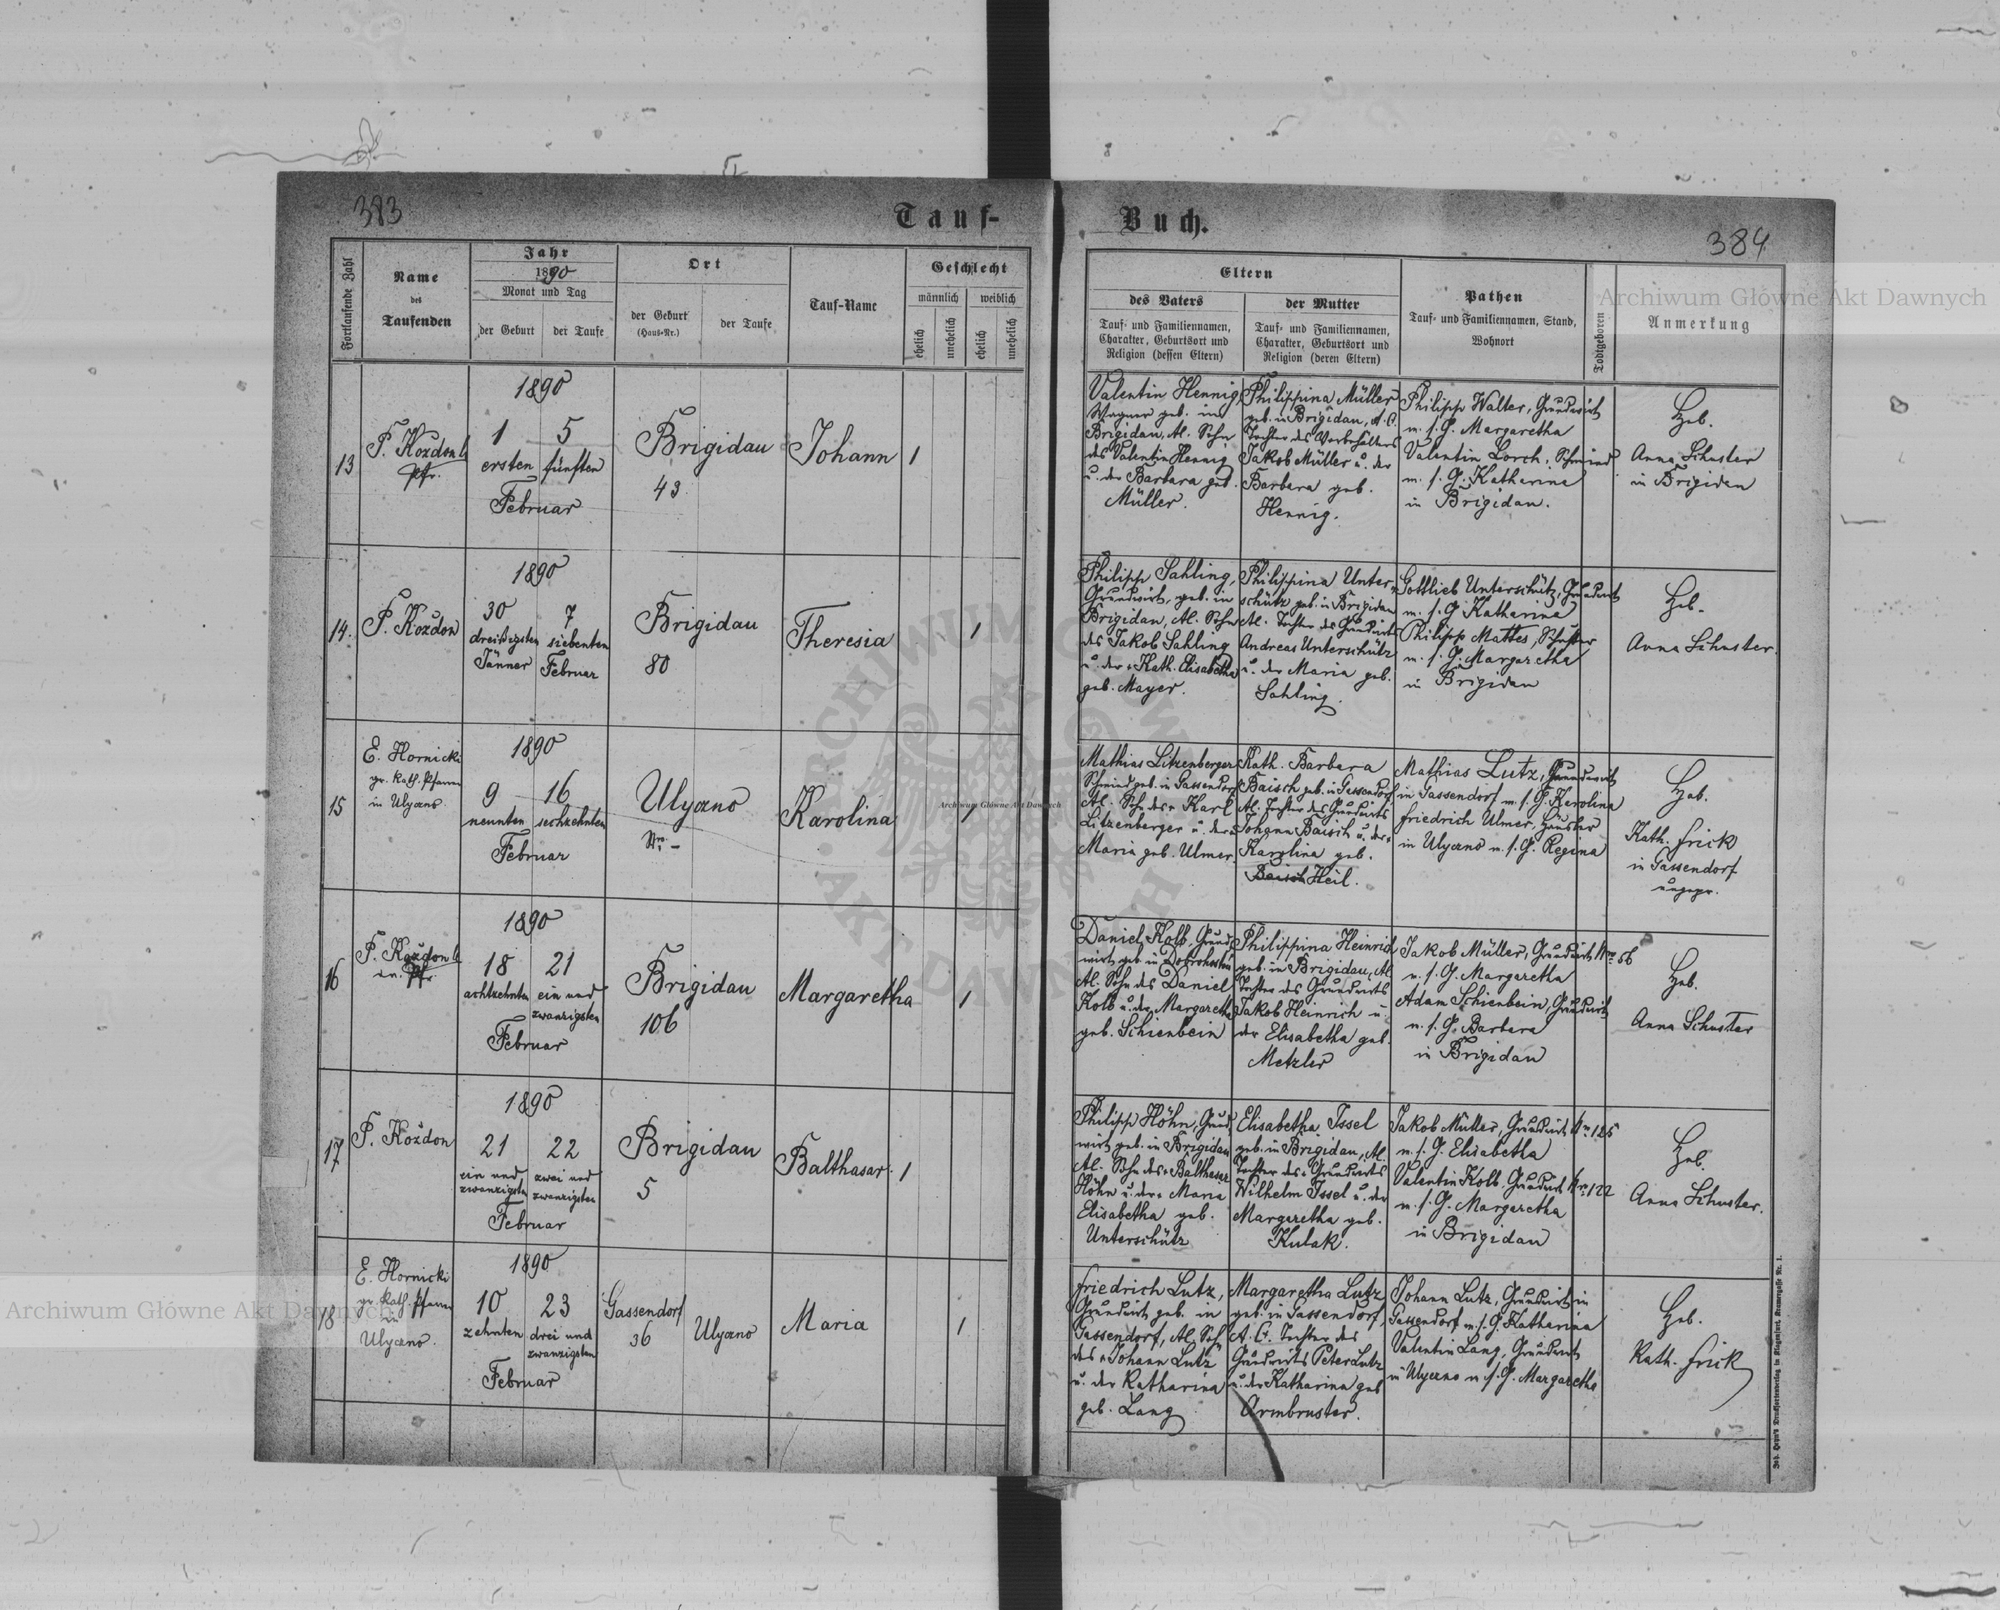 383
Tauf-
Buch.
384
Fortlaufende Zahl
Name
des
Taufenden
Jahr
1890
Monat und Tag
der Geburt
der Taufe
Ort
der Geburt
(Haus-Nr.)
der Taufe
Tauf-Name
Geschlecht
männlich
weiblich
ehelich
unehelich
ehelich
unehelich
Eltern
des Vaters
Tauf- und Familiennamen,
Charakter, Geburtsort und
Religion (dessen Eltern)
der Mutter
Tauf- und Familiennamen,
Charakter, Geburtsort und
Religion (deren Eltern)
Pathen
Tauf- und Familiennamen, Stand,
Wohnort
Todtgeboren
Anmerkung
13
F. Koždon
Pfr.
1890
1
ersten
5
fünften
Februar
Brigidau
43
Johann
1
Valentin Hennig,
Wagner geb. in
Brigidau, Al. Sohn
des Valentin Hennig
u. der Barbara geb.
Müller.
Philippina Müller
geb. in Brigidau, A. C.
Tochter des Vorbehälters
Jakob Müller u. der
Barbara geb.
Hennig.
Philipp Walter, Grundwirt
m. s. G. Margaretha
Valentin Lorch, Schmied
m. s. G. Katharina
in Brigidau.
Heb.
Anna Schuster
in Brigidau
14.
F. Koždon
1890
30
dreißigsten
Jänner
7
siebenten
Februar
Brigidau
80
Theresia
1
Philipp Sahling,
Grundwirt, geb. in
Brigidau, Al. Sohn
des Jakob Sahling
u. der Kath. Elisabetha
geb. Mayer.
Philippina Unter-
schütz geb. in Brigidau
Al. Tochter des Grundwirts
Andreas Unterschütz
u. der Maria geb.
Sahling
Gottlieb Unterschütz, Grundwirt
m. s. G. Katharina
Philipp Mattes, Schuster
m. s. G. Margaretha
in Brigidau
Heb.
Anna Schuster.
15
E. Hornicki
gr. kath. Pfarrer
in Ulyczno.
1890
9
neunten
16
sechzehnten
Februar
Ulyczno
Nr. -
Karolina
1
Mathias Litzenberger
Schmied geb. in Gassendorf
Al. Sohn des Karl
Litzenberger u. der
Maria geb. Ulmer.
Kath. Barbara
Baisch geb. in Gassendorf
Al. Tochter des Grundwirts
Johann Baisch u. der
Karolina geb.
Baisch Heil.
Mathias Lutz, Grundwirt
in Gassendorf m. s. G. Karolina
Friedrich Ulmer, Häusler
in Ulyczno m. s. G. Regina
Heb.
Kath. Frick
in Gassendorf
ungepr.
16
F. Koždon
Pfr.
1890
18
achtzehnten
21
ein und
zwanzigsten
Februar
Brigidau
106
Margaretha
1
Daniel Kolb, Grund-
wirt geb. in
Al. Sohn des Daniel
Kolb u. der Margaretha
geb. Schienbein
Philippina Heinrich
geb. in Brigidau, Al.
Tochter des Grundwirts
Jakob Heinrich u.
der Elisabetha geb.
Metzler
Jakob Müller, Grundwirt Nro 56
m. s. G. Margaretha
Adam Schienbein, Grundwirt
m. s. G. Barbara
in Brigidau
Heb.
Anna Schuster
17
F. Koždon
1890
21
ein und
zwanzigsten
22
zwei und
zwanzigsten
Februar
Brigidau
5
Balthasar
1
Philipp Höhn, Grund-
wirt geb. in Brigidau
Al. Sohn des Balthasar
Höhn u. der Maria
Elisabetha geb.
Unterschütz
Elisabetha Issel
geb. in Brigidau, Al.
Tochter des Grundwirts
Wilhelm Issel u. der
Margaretha geb.
Kulak.
Jakob Müller, Grundwirt Nro 125
m. s. G. Elisabetha
Valentin Kolb, Grundwirt Nro 122
m. s. G. Margaretha
in Brigidau
Heb.
Anna Schuster.
18
E. Hornicki
gr. kath. Pfarrer
in
Ulyczno.
1890
10
zehnten
23
drei und
zwanzigsten
Februar
Gassendorf
36
Ulyczno
Maria
1
Friedrich Lutz,
Grundwirt geb. in
Gassendorf, Al. Sohn
des Johann Lutz
u. der Katharina
geb. Lang
Margaretha Lutz
geb. in Gassendorf,
A. C. Tochter des
Grundwirts Peter Lutz
u. der Katharina geb.
Armbruster.
Johann Lutz, Grundwirt in
Gassendorf m. s. G. Katharina
Valentin Lang, Grundwirt
in Ulyczno m. s. G. Margaretha
Heb.
Kath. Frick
Archiwum Główne Akt Dawnych
Archiwum Główne Akt Dawnych
Archiwum Główne Akt Dawnych